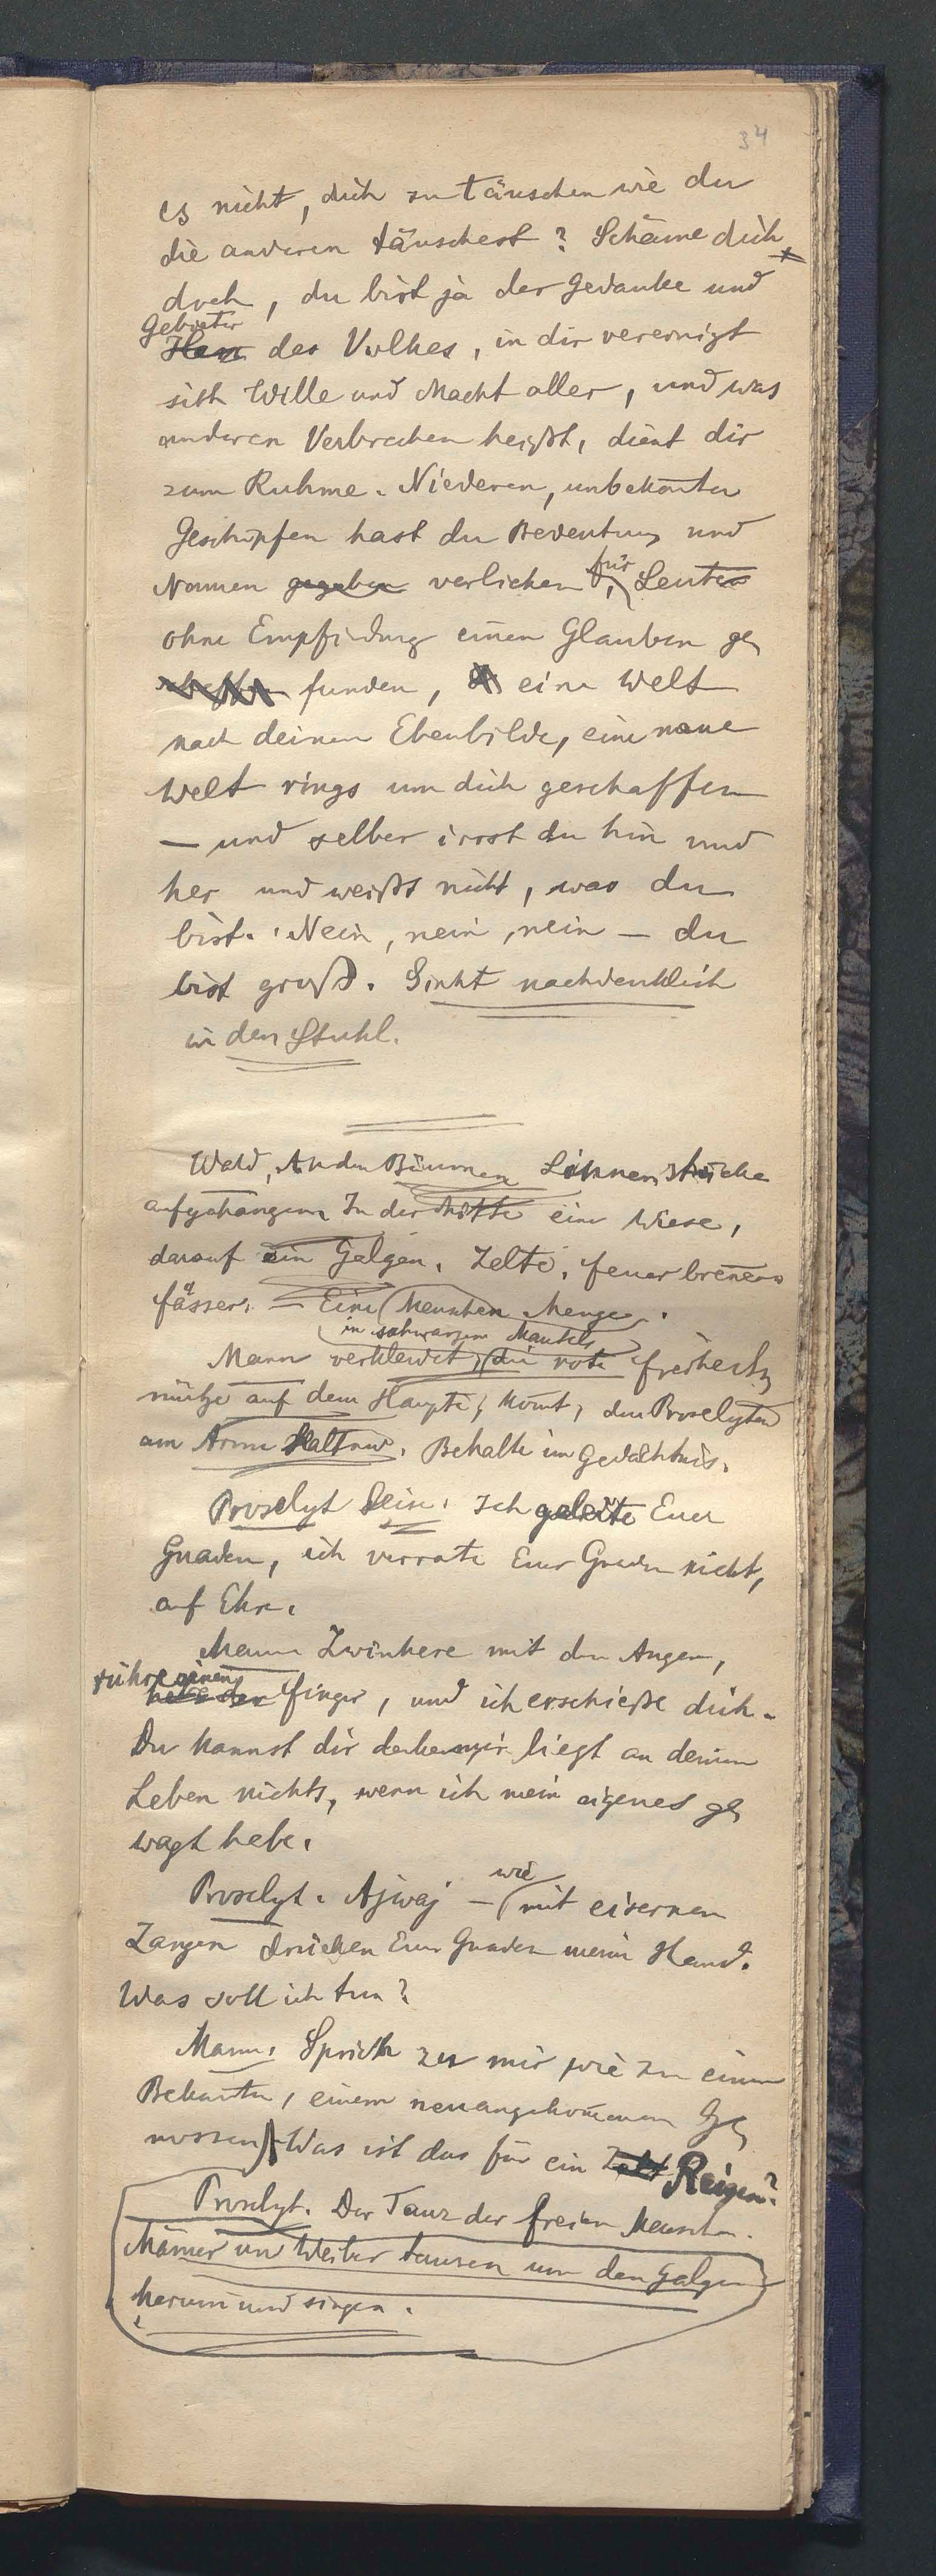 34
es nicht, dich zu täuschen wie du
die anderen täuschest? Schäme dich
doch, du bist ja der Gedanke und
Gebieter
Herr des Volkes, in dir vereinigt
sich Wille und Macht aller, und was
anderen Verbrechen heißt, dient dir
zum Ruhme. Niederen, unbekannten
Geschöpfen hast du Bedeutung und
für
Namen gegeben verliehen, Leuten
ohne Empfindung einen Glauben ge
funden, eine Welt
nach deinem Ebenbilde, eine neue
Welt rings um dich geschaffen
— und selber irrst du hin und
her und weißt nicht, was du
bist. Nein, nein, nein — du
bist groß. Sinkt nachdenklich
in den Stuhl.
Wald, An den Bäumen Linnenstücke
aufgehangen. In der Mitte eine Wiese,
darauf ein Galgen. Zelte, Feuer brennen
fässer. — Eine Menschen Menge.
in schwarzem Mantel
Mann verkleidet, die rote Freiheits
mütze auf dem Haupte, kommt, den Proselyten
am Arme haltend. Behalte im Gedächtnis.
Proselyt leise. Ich geleite Euer
Gnaden, ich verrate Euer Gnaden nicht,
auf Ehre.
Mann Zwinkere mit den Augen,
rühre einen
hebe den Finger, und ich erschieße dich.
Du kannst dir denken, mir liegt an deinem
Leben nichts, wenn ich mein eigenes ge
wagt habe.
wie
Proselyt. Ajwaj — mit eisernen
Zangen drücken Euer Gnaden meine Hand.
Was soll ich tun?
Mann. Sprich zu mir wie zu einem
Bekannten, einem neuangekommenen Ge
nossen. Was ist das für ein Reigen?
Proselyt. Der Tanz der freien Menschen.
Männer und Weiber tanzen um den Galgen
herum und singen.